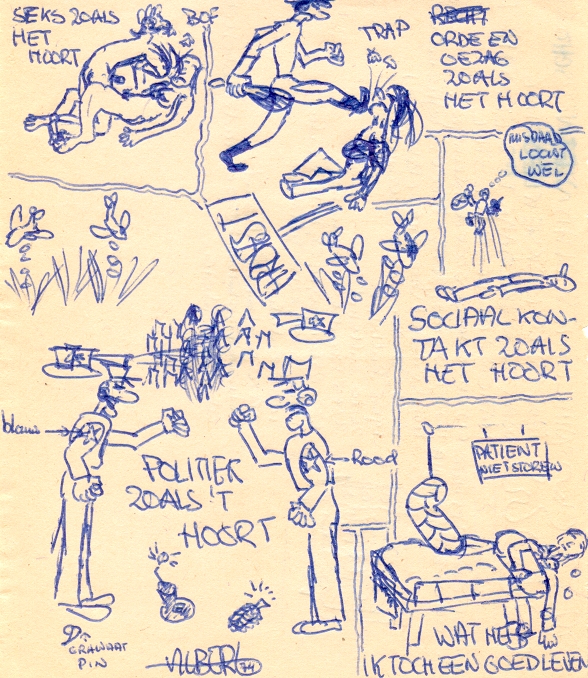 SEKS ZOALS
HET
HOORT
BOF
TRAP
RECHT
ORDE EN
GEZAG
ZOALS
HET HOORT
MISDAAD
LOONT
WEL
PROEST!
SOCIAAL KON-
TAKT ZOALS
HET HOORT
blauw
Rood
POLITIEK
ZOALS 'T
HOORT
PATIENT
NIET STOREN
WAT HEB
IK TOCH EEN GOED LEVEN
GRANAAT
PIN
ALBERT
74